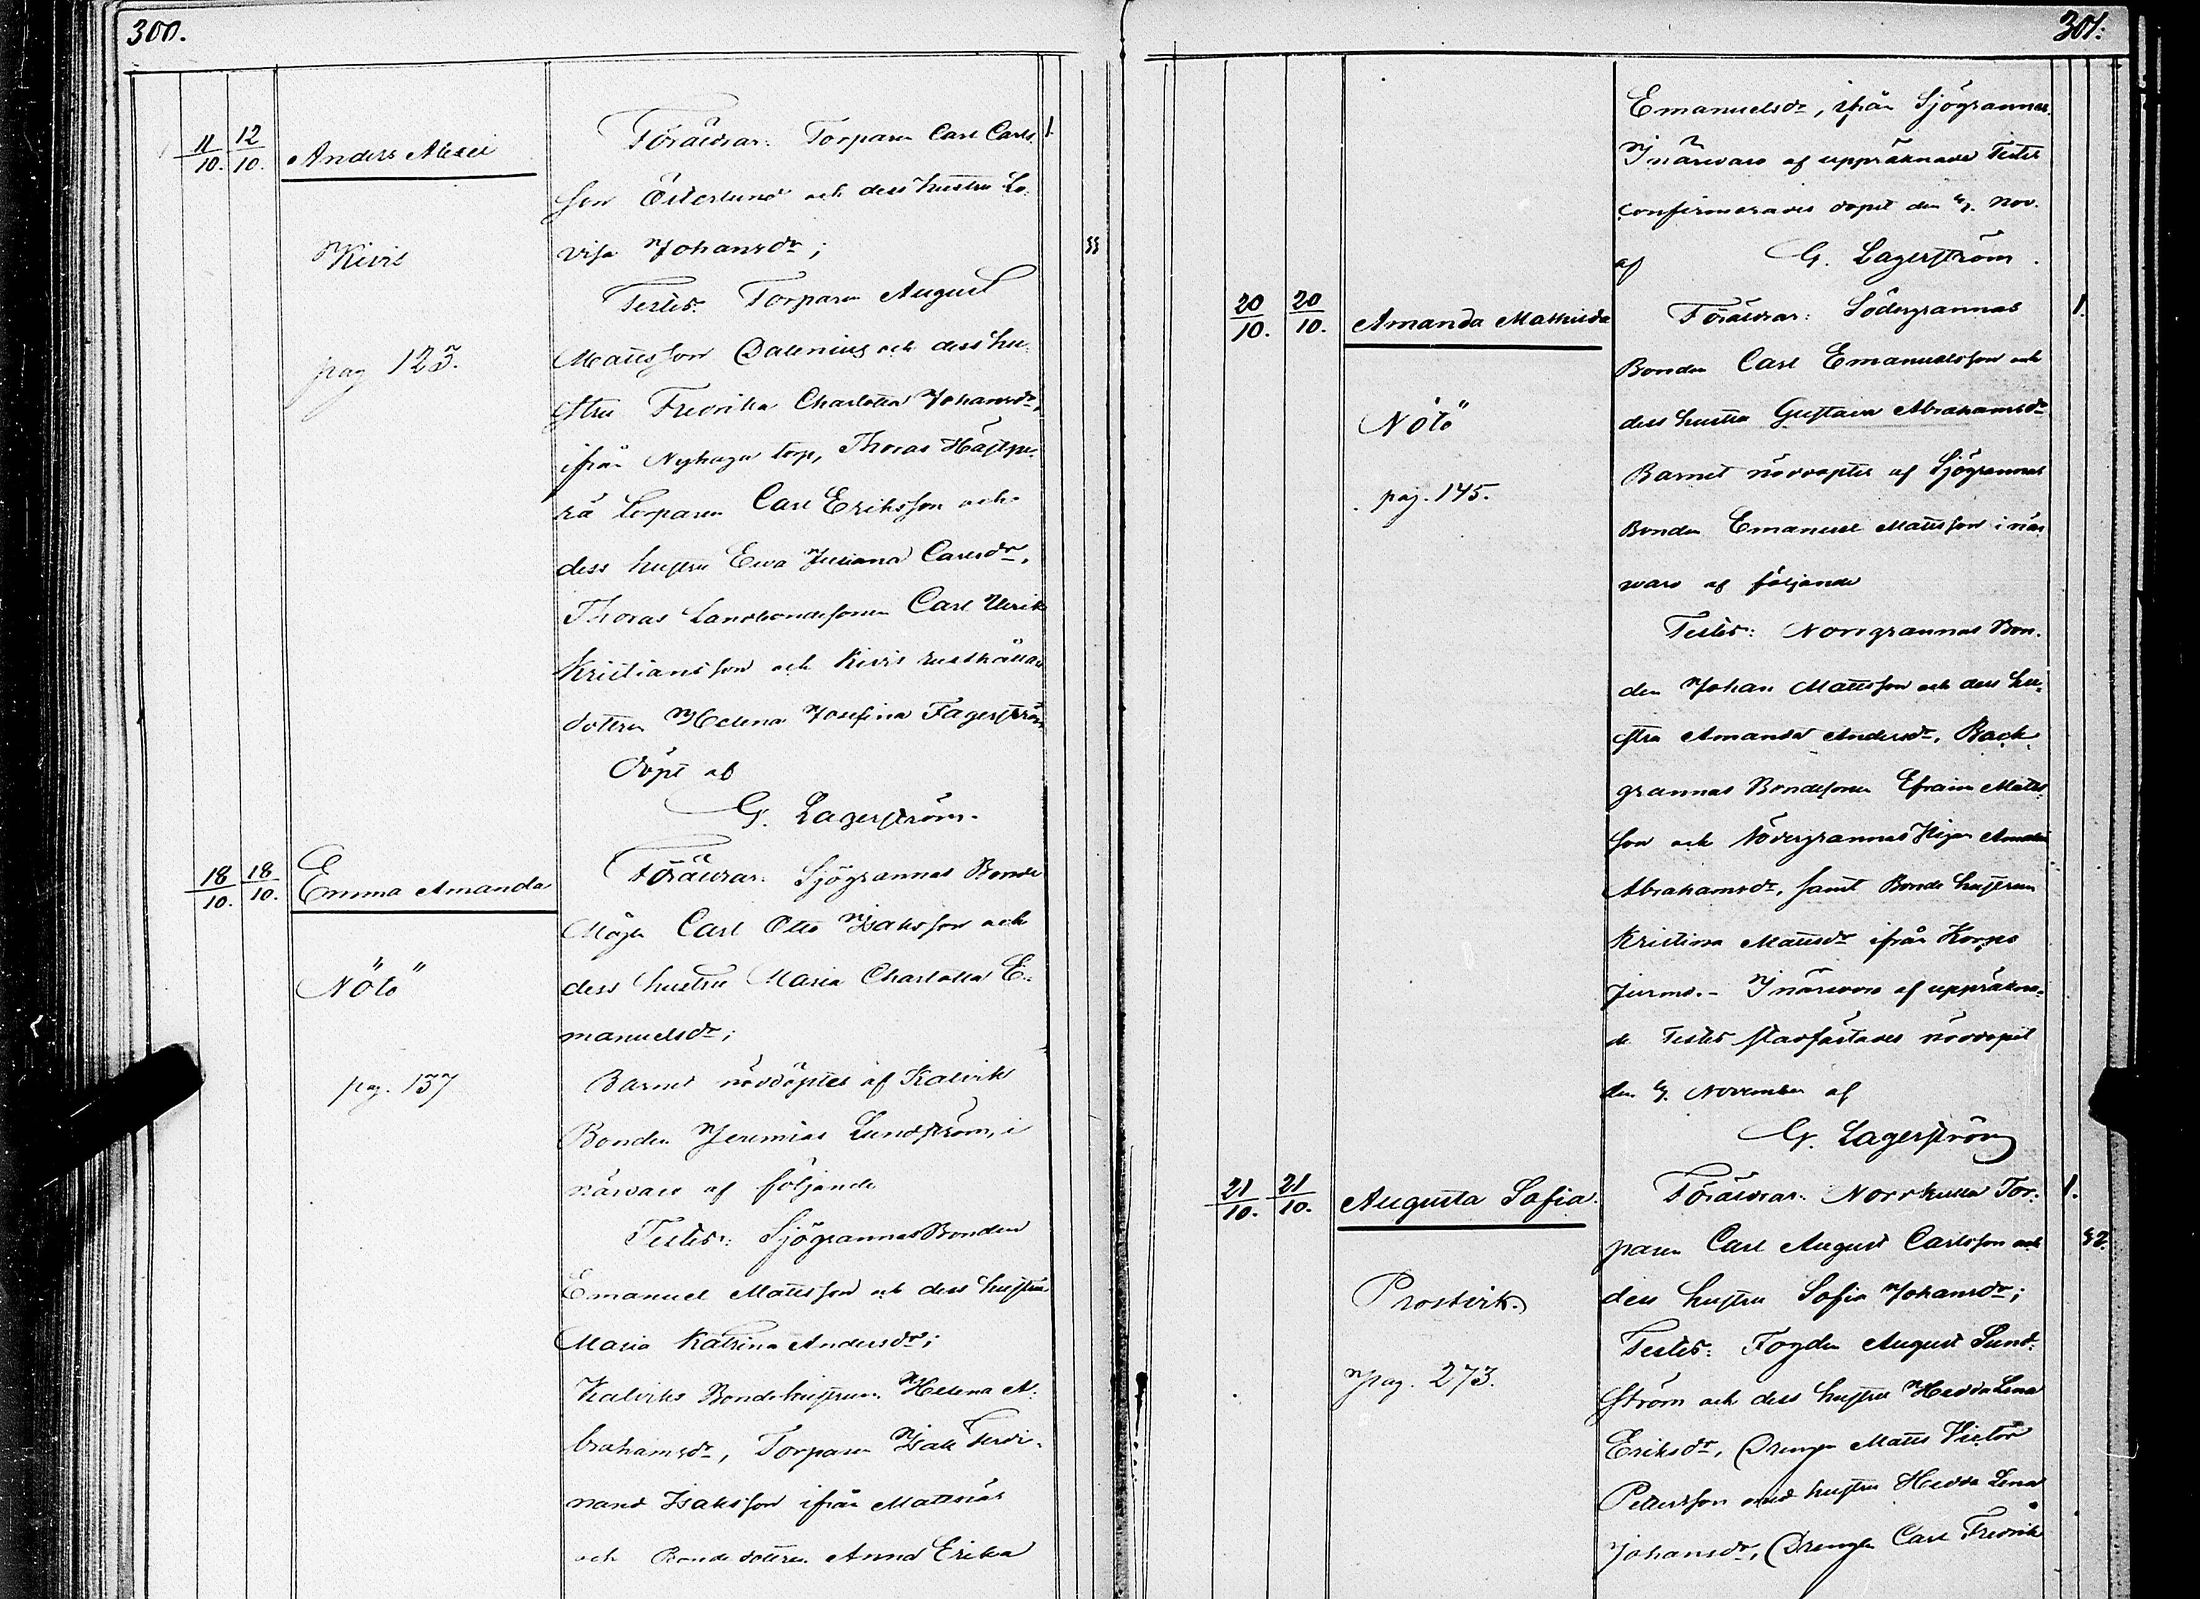 300.
11/10. 12/10. Anders Alexei
Kivis
pag 123.
Föräldrar: Torparen Carl Carls- 1.
son Österlund och dess hustru Lo-
visa Johansdr;
Testes: Torparen August
Mattsson Dalenius och dess hu-
stru Fredrika Charlotta Johansdr,
ifrån Nyhaga torp, Thoras
rå torparen Carl Eriksson och
dess hustru Ewa Juliana Carlsdr,
Thoras Landbondesonen Carl Ulrik
Kristiansson och Kivis rusthållare
dottren Helena Josefina Fagerström
Döpt af
G. Lagerström.
18/10. 18/10. Emma Amanda
Nötö
pag. 137
Föräldrar: Sjögrannas Bonde
Mågen Carl Otto Isaksson och
dess hustru Maria Charlotta E-
manuelsdr;
Barnet nöddöptes af Kalviks
Bonden Jeremias Lundström, i
närvaro af följande
Testes: Sjögrannas Bonden
Emanuel Mattsson och dess hustru
Maria Katrina Andersdr;
Kalviks Bondehustrun Helena A-
brahamsdr, Torparen Isak Ferdi-
nand Isaksson ifrån Mattnäs
och Bondedottren Anna Erika
301.
Emanuelsdr, ifrån Sjögrannas.
I närvaro af uppräknade Testes
confirmerades dopet den 6/9. Nov.
af G. Lagerström.
20/10. 20/10. Amanda Mathilda
Nötö
pag. 145.
Föräldrar: Södergrannas 1.
Bonden Carl Emanuelsson och
dess hustru Gustava Abrahamsdr
Barnet nöddöptes af Sjögrannas
Bonden Emanuel Mattsson i när-
varo af följande
Testes: Norrgrannas Bon-
den Johan Mattsson och dess hu-
stru Amanda Andersdr, Back-
grannas Bondesonen Efraim Matts-
son och Södergrannas Pigan Amanda
Abrahamsdr, samt Bonde hustrun
Kristina Mattsdr ifrån Korpo
Jurmo. - I närvaro af uppräkna-
de Testes stadfästades nöddopet
den November af
G. Lagerström
21/10. 21/10. Augusta Sofia.
Prostvik.
pag. 273.
Föräldrar: Norrkulla Tor- 1.
paren Carl August Carlsson och
dess hustru Sofia Johansdr;
Testes: Fogden August Lund-
ström och dess hustru Hedda Lena
Eriksdr, Drengen Matts Victor
Pettersson med hustru Hedda Lena
Johansdr, Drengen Carl Fredrik